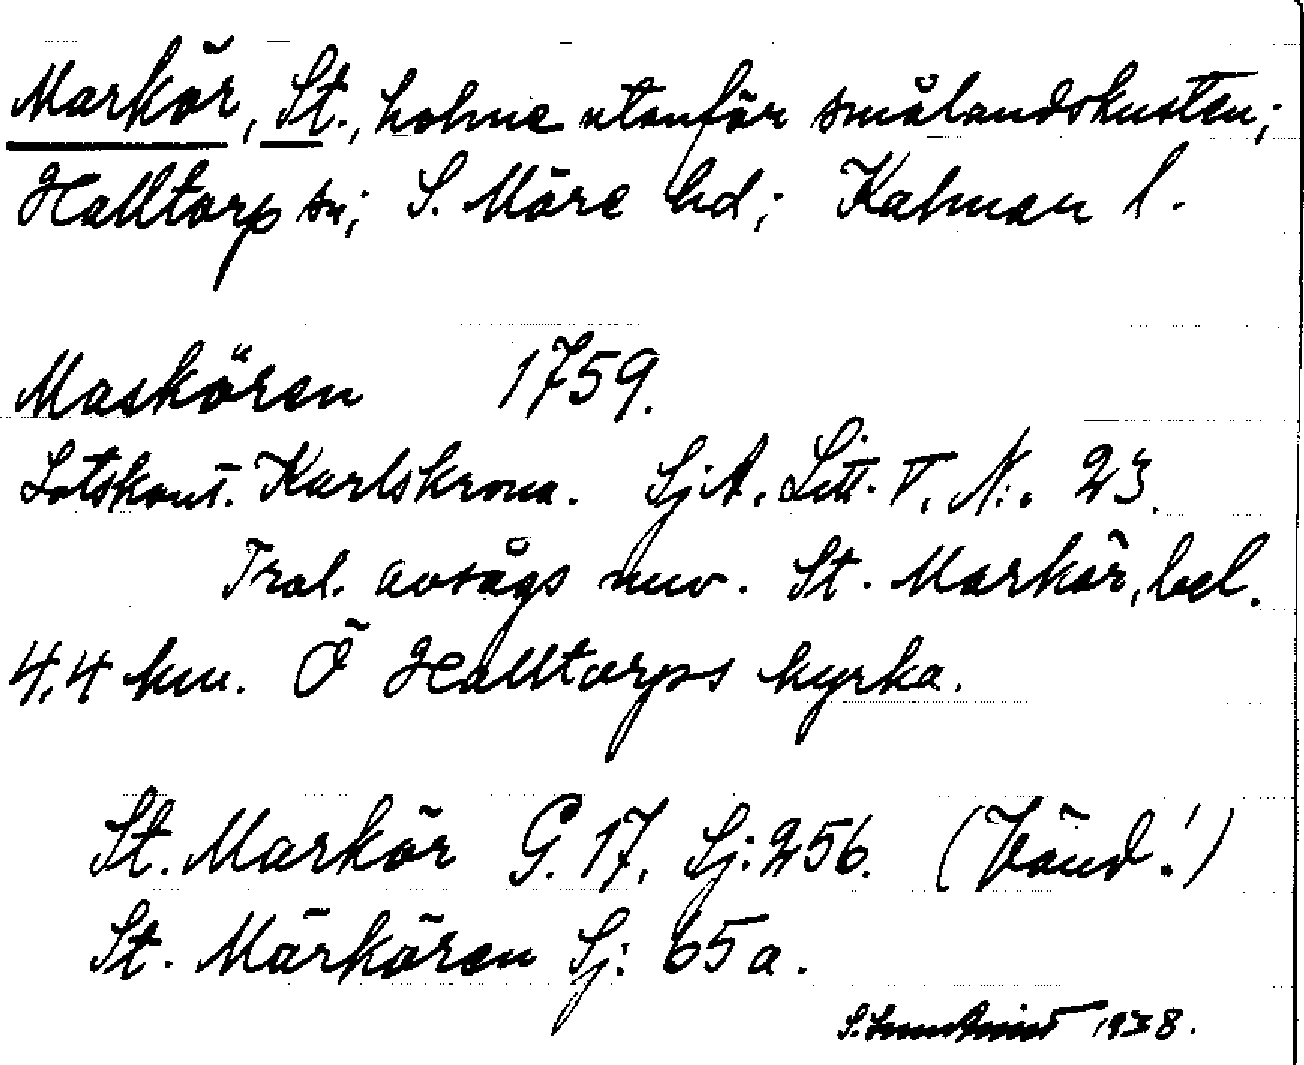 Markör, St., holme utanför smålandskusten;
Halltorp sn; S. Möre hd; Kalmar l.
Maskören 1759.
Lotskont. Karlskrona. SjA. Litt. T. N:o 23.
Trol. avsågs nuv. St. Markör, bel.
4,4 km. Ö Halltorps kyrka.
St. Markör G. 17, Sj: 256. (Vänd!)
St. Märkören Sj: 65a.
S. 1938.